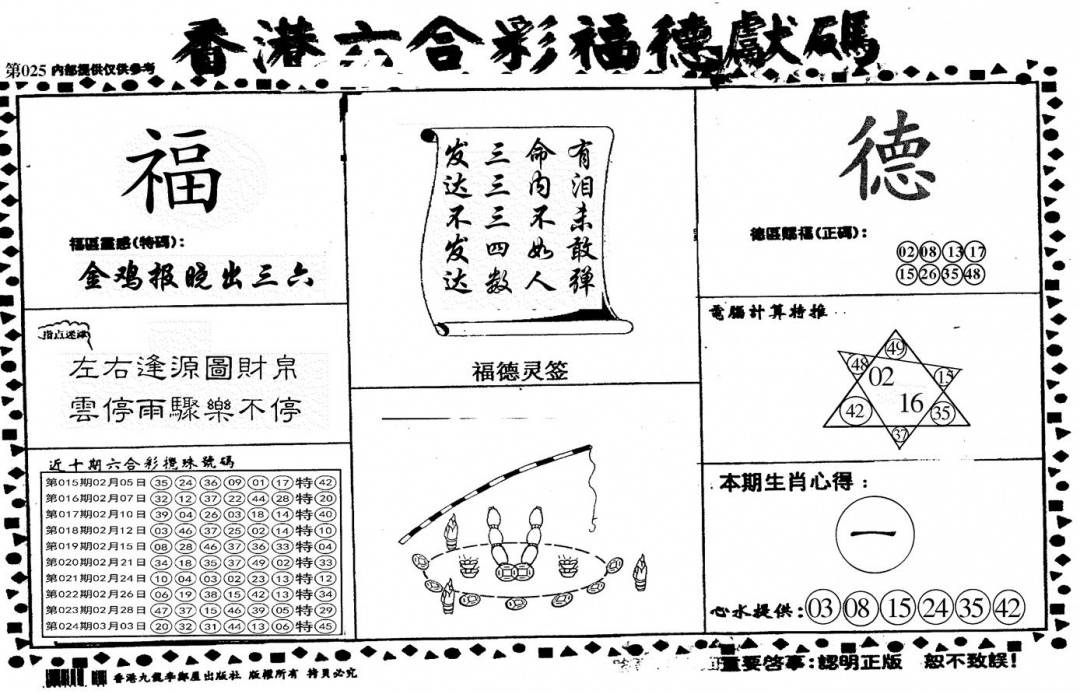 香港六合彩福德獻碼
第025 内部提供仅供参考
福
福區靈感(特碼):
金鸡报晓出三六
指点迷津
左右逢源圖財帛
雲停雨驟樂不停
近十期六合彩攪珠號碼
第015期02月05日 35 24 36 09 01 17 特 42
第016期02月07日 32 12 37 22 44 28 特 20
第017期02月10日 39 04 26 03 18 14 特 40
第018期02月12日 03 46 37 25 02 14 特 10
第019期02月15日 08 28 46 37 36 33 特 04
第020期02月21日 34 18 35 37 49 02 特 33
第021期02月24日 10 04 03 02 23 13 特 12
第022期02月26日 06 19 38 15 42 13 特 34
第023期02月28日 47 37 15 46 39 05 特 29
第024期03月03日 20 32 31 44 13 06 特 45
有泪未敢弹
命内不如人
三三三四数
发达不发达
福德灵签
德
德區賜福(正碼):
02 08 13 17
15 26 35 48
電腦計算特推
49
48
02
15
42
16
35
37
本期生肖心得:
一
心水提供: 03 08 15 24 35 42
香港九龍李鄭屋出版社 版權所有 拷貝必究
重要啓事:認明正版 恕不致誤!